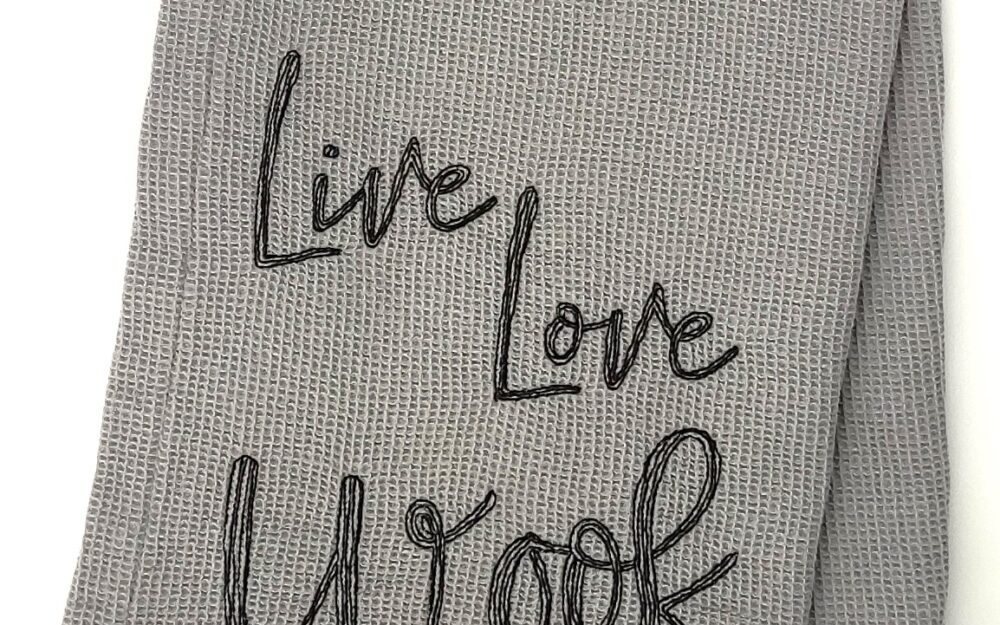 Live
Love
Woof